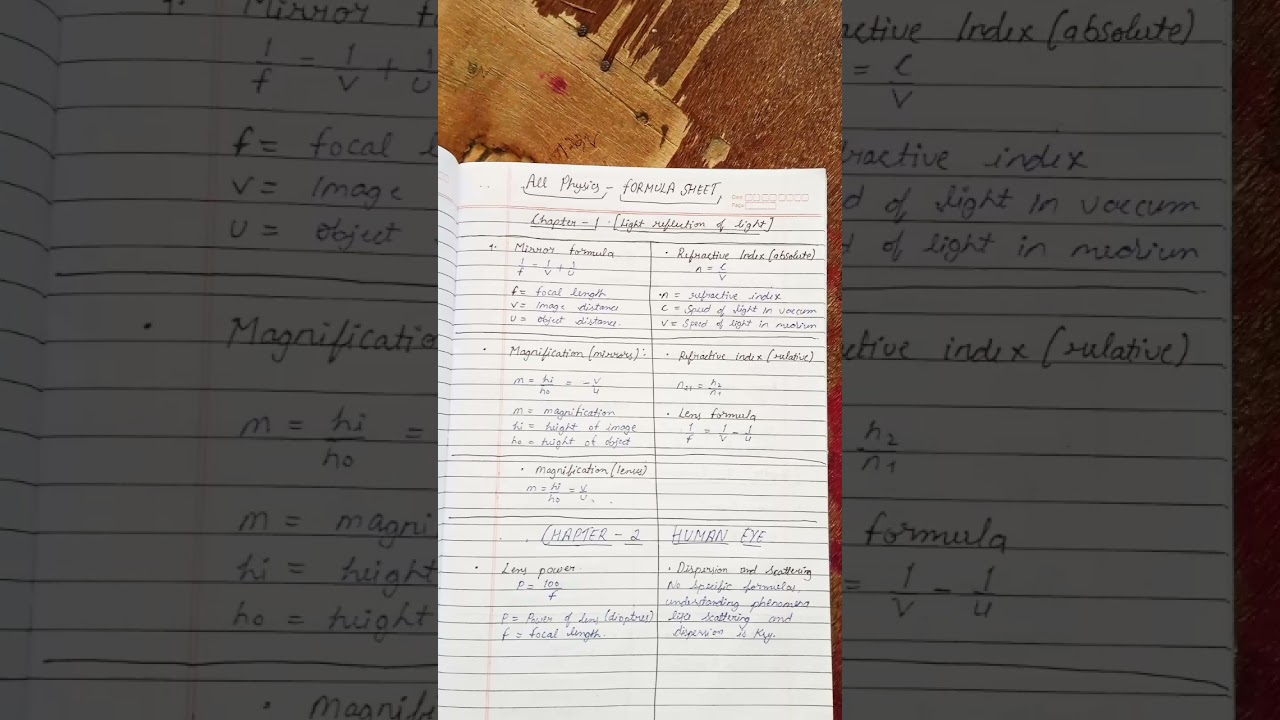 All Physics - FORMULA SHEET
Date
Page
Chapter - 1 [Light reflection of light]
Mirror formula
1/f = 1/v + 1/u
f = focal length
v = Image distance
u = object distance.
Magnification (mirrors):
m = hi/ho = -v/u
m = magnification
hi = height of image
ho = height of object
• Refractive Index (absolute)
n = c/v
n = refractive index
c = Speed of light In vaccum
v = Speed of light in medium
• Refractive index (relative)
n21 = n2/n1
• Lens formula
1/f = 1/v - 1/u
• Magnification (lenses)
m = hi/ho = v/u
CHAPTER - 2 HUMAN EYE
• Lens power
P = 100/f
P = Power of lens (dioptres)
f = focal length.
• Dispersion and Scattering
No specific formulas,
understanding phenomena
like scattering and
dispersion is Key.